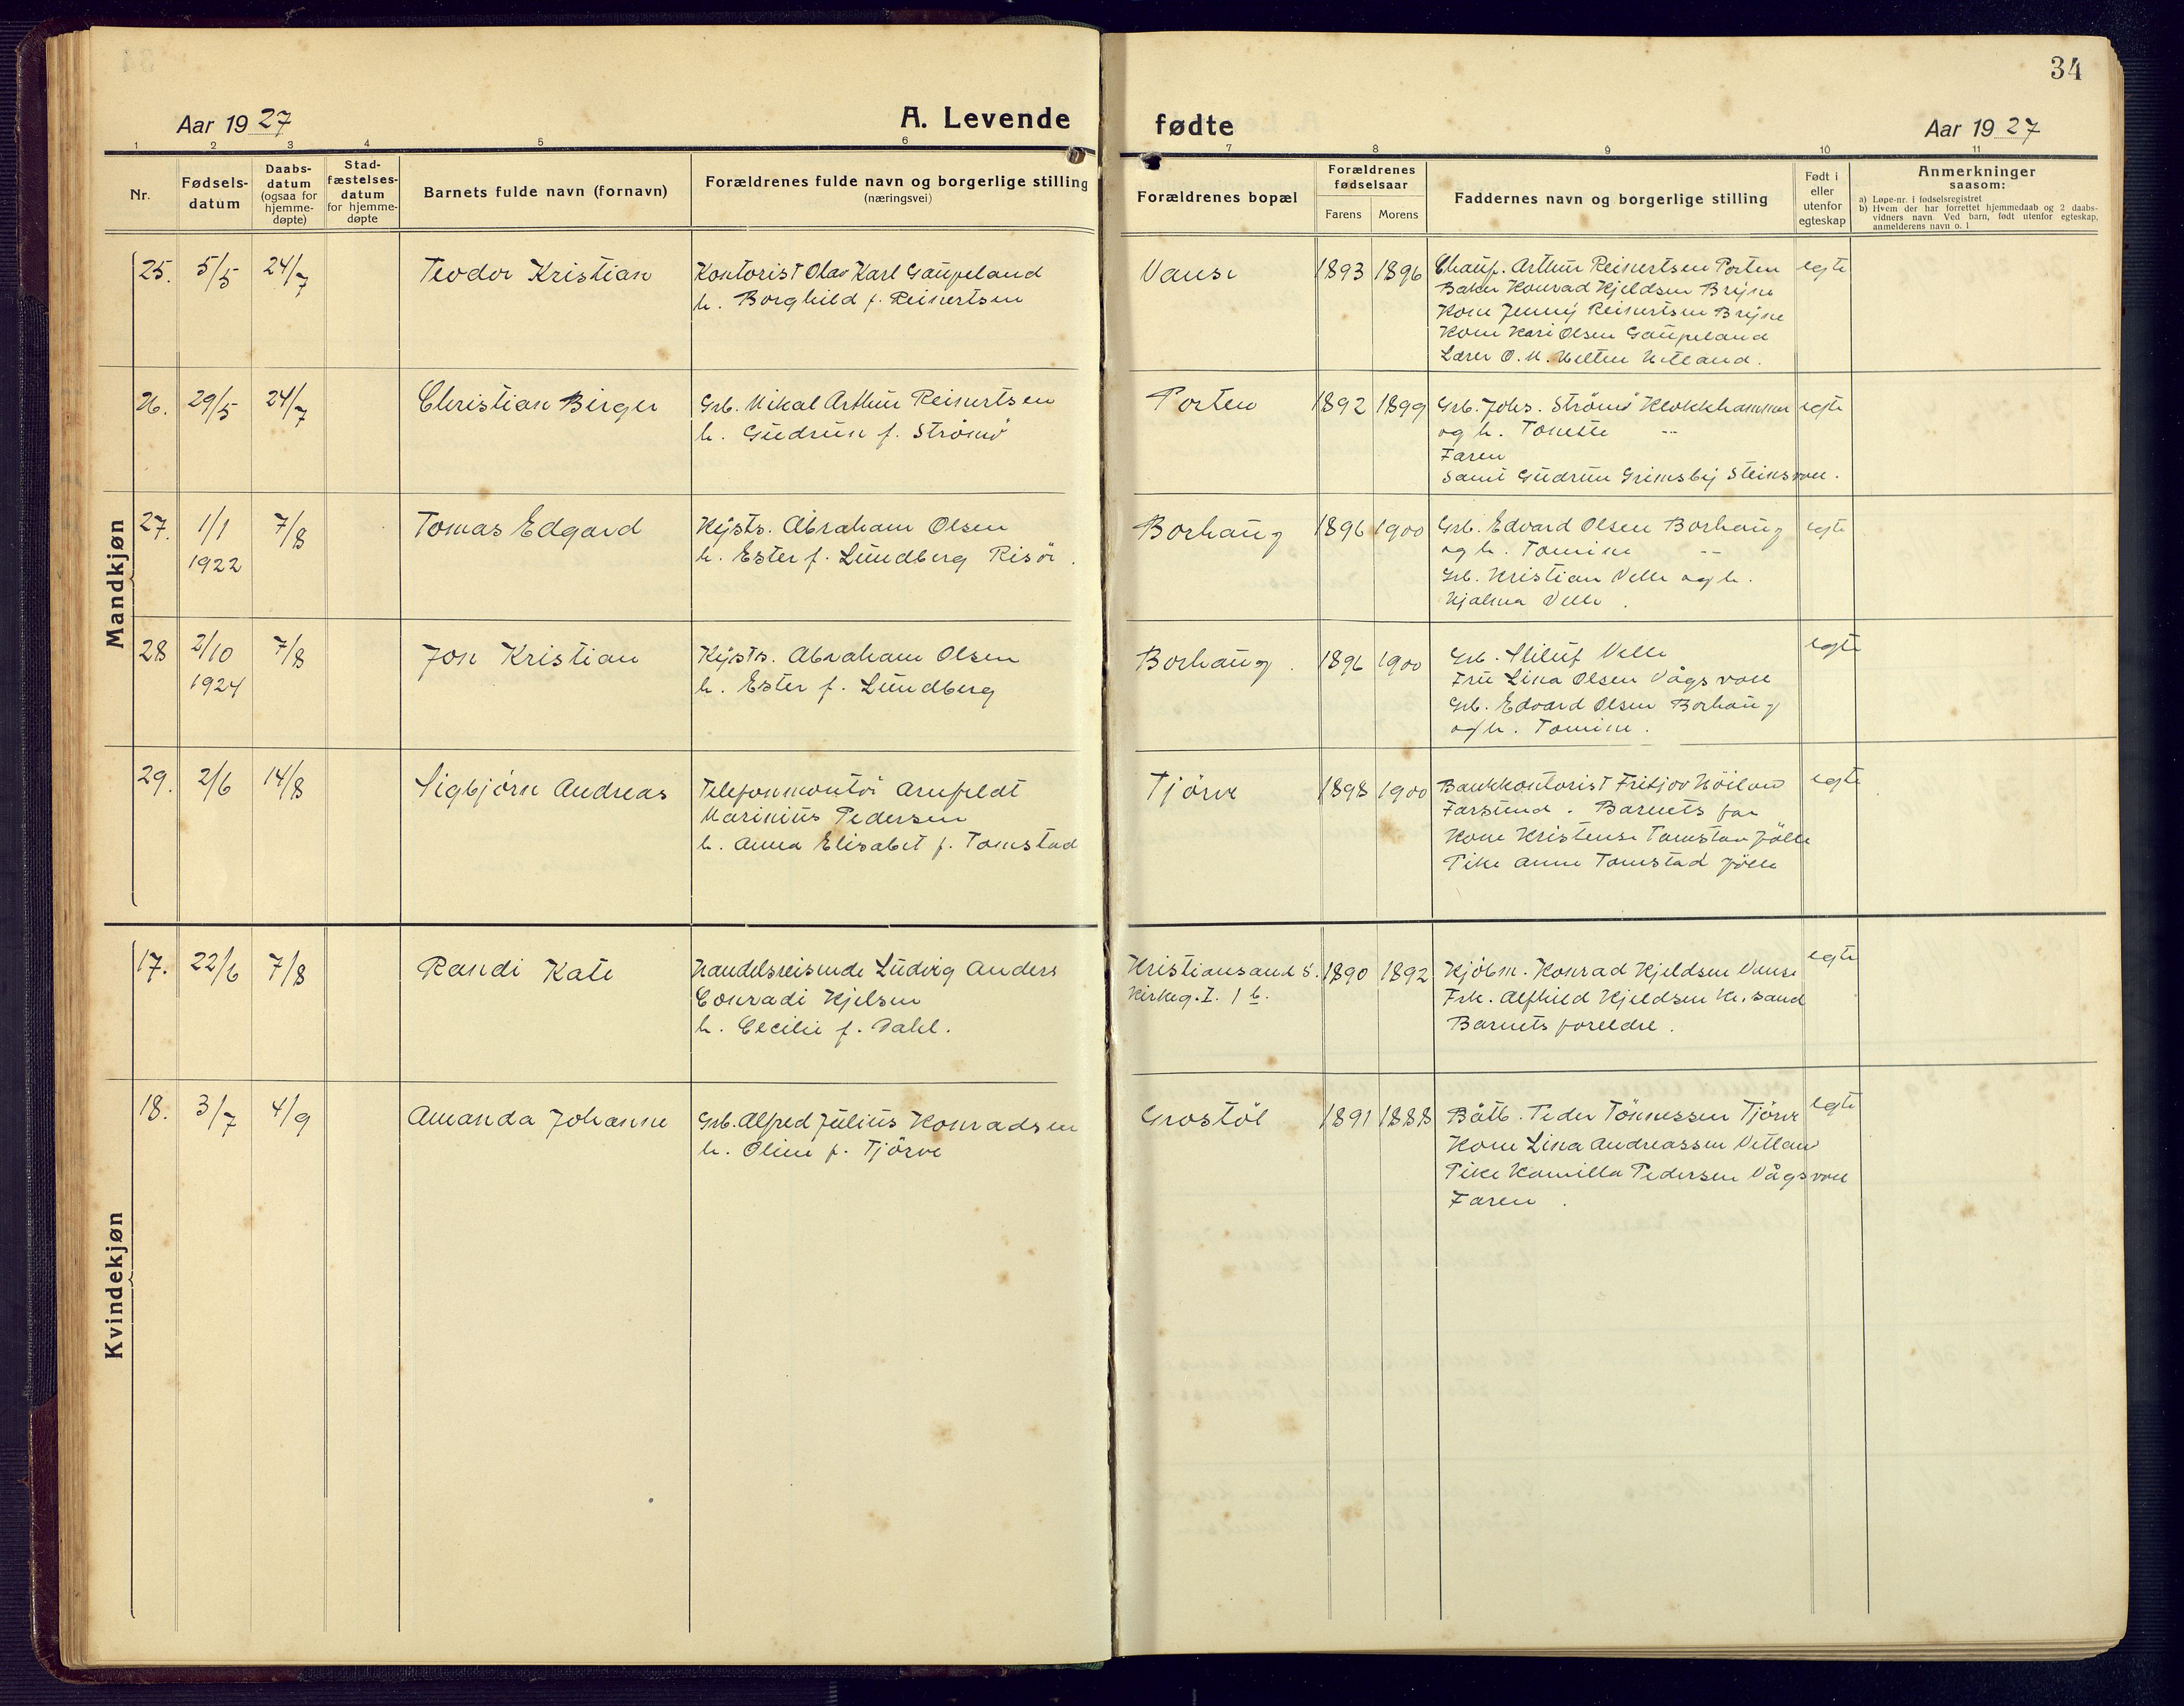 34
Aar 19 27
A. Levende
fødte
Aar 19 27
1 2 3 4 5 6 7 8 9 10 11
Nr.
Fødsels-
datum
Daabs-
datum
(ogsaa for
hjemme-
døpte)
Stad-
fæstelses-
datum
for hjemme-
døpte
Barnets fulde navn (fornavn)
Forældrenes fulde navn og borgerlige stilling
(næringsvei)
Forældrenes bopæl
Forældrenes
fødselsaar
Farens Morens
Faddernes navn og borgerlige stilling
Født i
eller
utenfor
egteskap
Anmerkninger
saasom:
a) Løpe-nr. i fødselsregistret
b) Hvem der har forrettet hjemmedaab og 2 daabs-
vidners navn. Ved barn, født utenfor egteskap,
anmelderens navn o. l
Mandkjøn
25. 5/5 24/7 Teodor Kristian
Kontorist Olav Karl Gaupeland
h. Borghild f. Reinertsen
Vanse 1893 1896
Chauf. Arthur Reinertsen Porten
Baker Konrad Kjeldsen Bryne
Kone Jenny Reinertsen Bryne
Kone Kari Olsen Gaupeland
Lærer O. M.
egte
26. 29/5 24/7 Christian Birger
Grb. Mikal Arthur Reinertsen
h. Gudrun f. Strömö
Porten 1892 1899
Grb. Johs. Strömö Klokkhammer
og h. Tonette --
Faren
samt Gudrun Grimsby Steinsvoll.
egte
27. 1/1
1922
7/8 Tomas Edgard
Kysts. Abraham Olsen
h. Ester f. Lundberg Risör.
Borhaug 1896 1900
Grb. Edvard Olsen Borhaug
og h. Tomine --
Grb. Kristian Velle og h.
Hjalma Velle.
egte
28 2/10
1924
7/8 Jon Kristian
Kysts. Abraham Olsen
h. Ester f. Lundberg
Borhaug. 1896 1900
Grb. Velle
Fru Lina Olsen Vågsvoll
Grb. Edvard Olsen Borhaug
og h. Tomine.
egte
29. 2/6 14/8 Sigbjørn Andreas
Telefonmontör Arnfeldt
Marinius Pedersen
h. Anna Elisabet f. Tomstad
Tjörve 1898 1900
Bankkontorist Fritjov Höiland
Farsund. Barnets far
Kone Kristense Tomstad Jölle
Pike Anne Tomstad Jölle
egte
Kvindekjøn
17. 22/6 7/8 Randi Kate
Handelsreisende Ludvig Anders
Conradi Kjelsen
h. Cecilie f. Dahl.
Kristiansand S.
Kirkeg. I. 1 b.
1890 1892
Kjöbm. Konrad Kjeldsen Vanse
Frk. Alfhild Kjeldsen Kr.sand
Barnets foreldre.
egte
18. 3/7 4/9 Amanda Johanne
Grb. Alfred Julius Konradsen
h. Oline f. Tjörve
Grostöl 1891 1888
Båtb. Peder Tönnessen Tjörve
Kone Lina Andreassen Vetland
Pike Kamilla Pedersen Vågsvoll
Faren.
egte